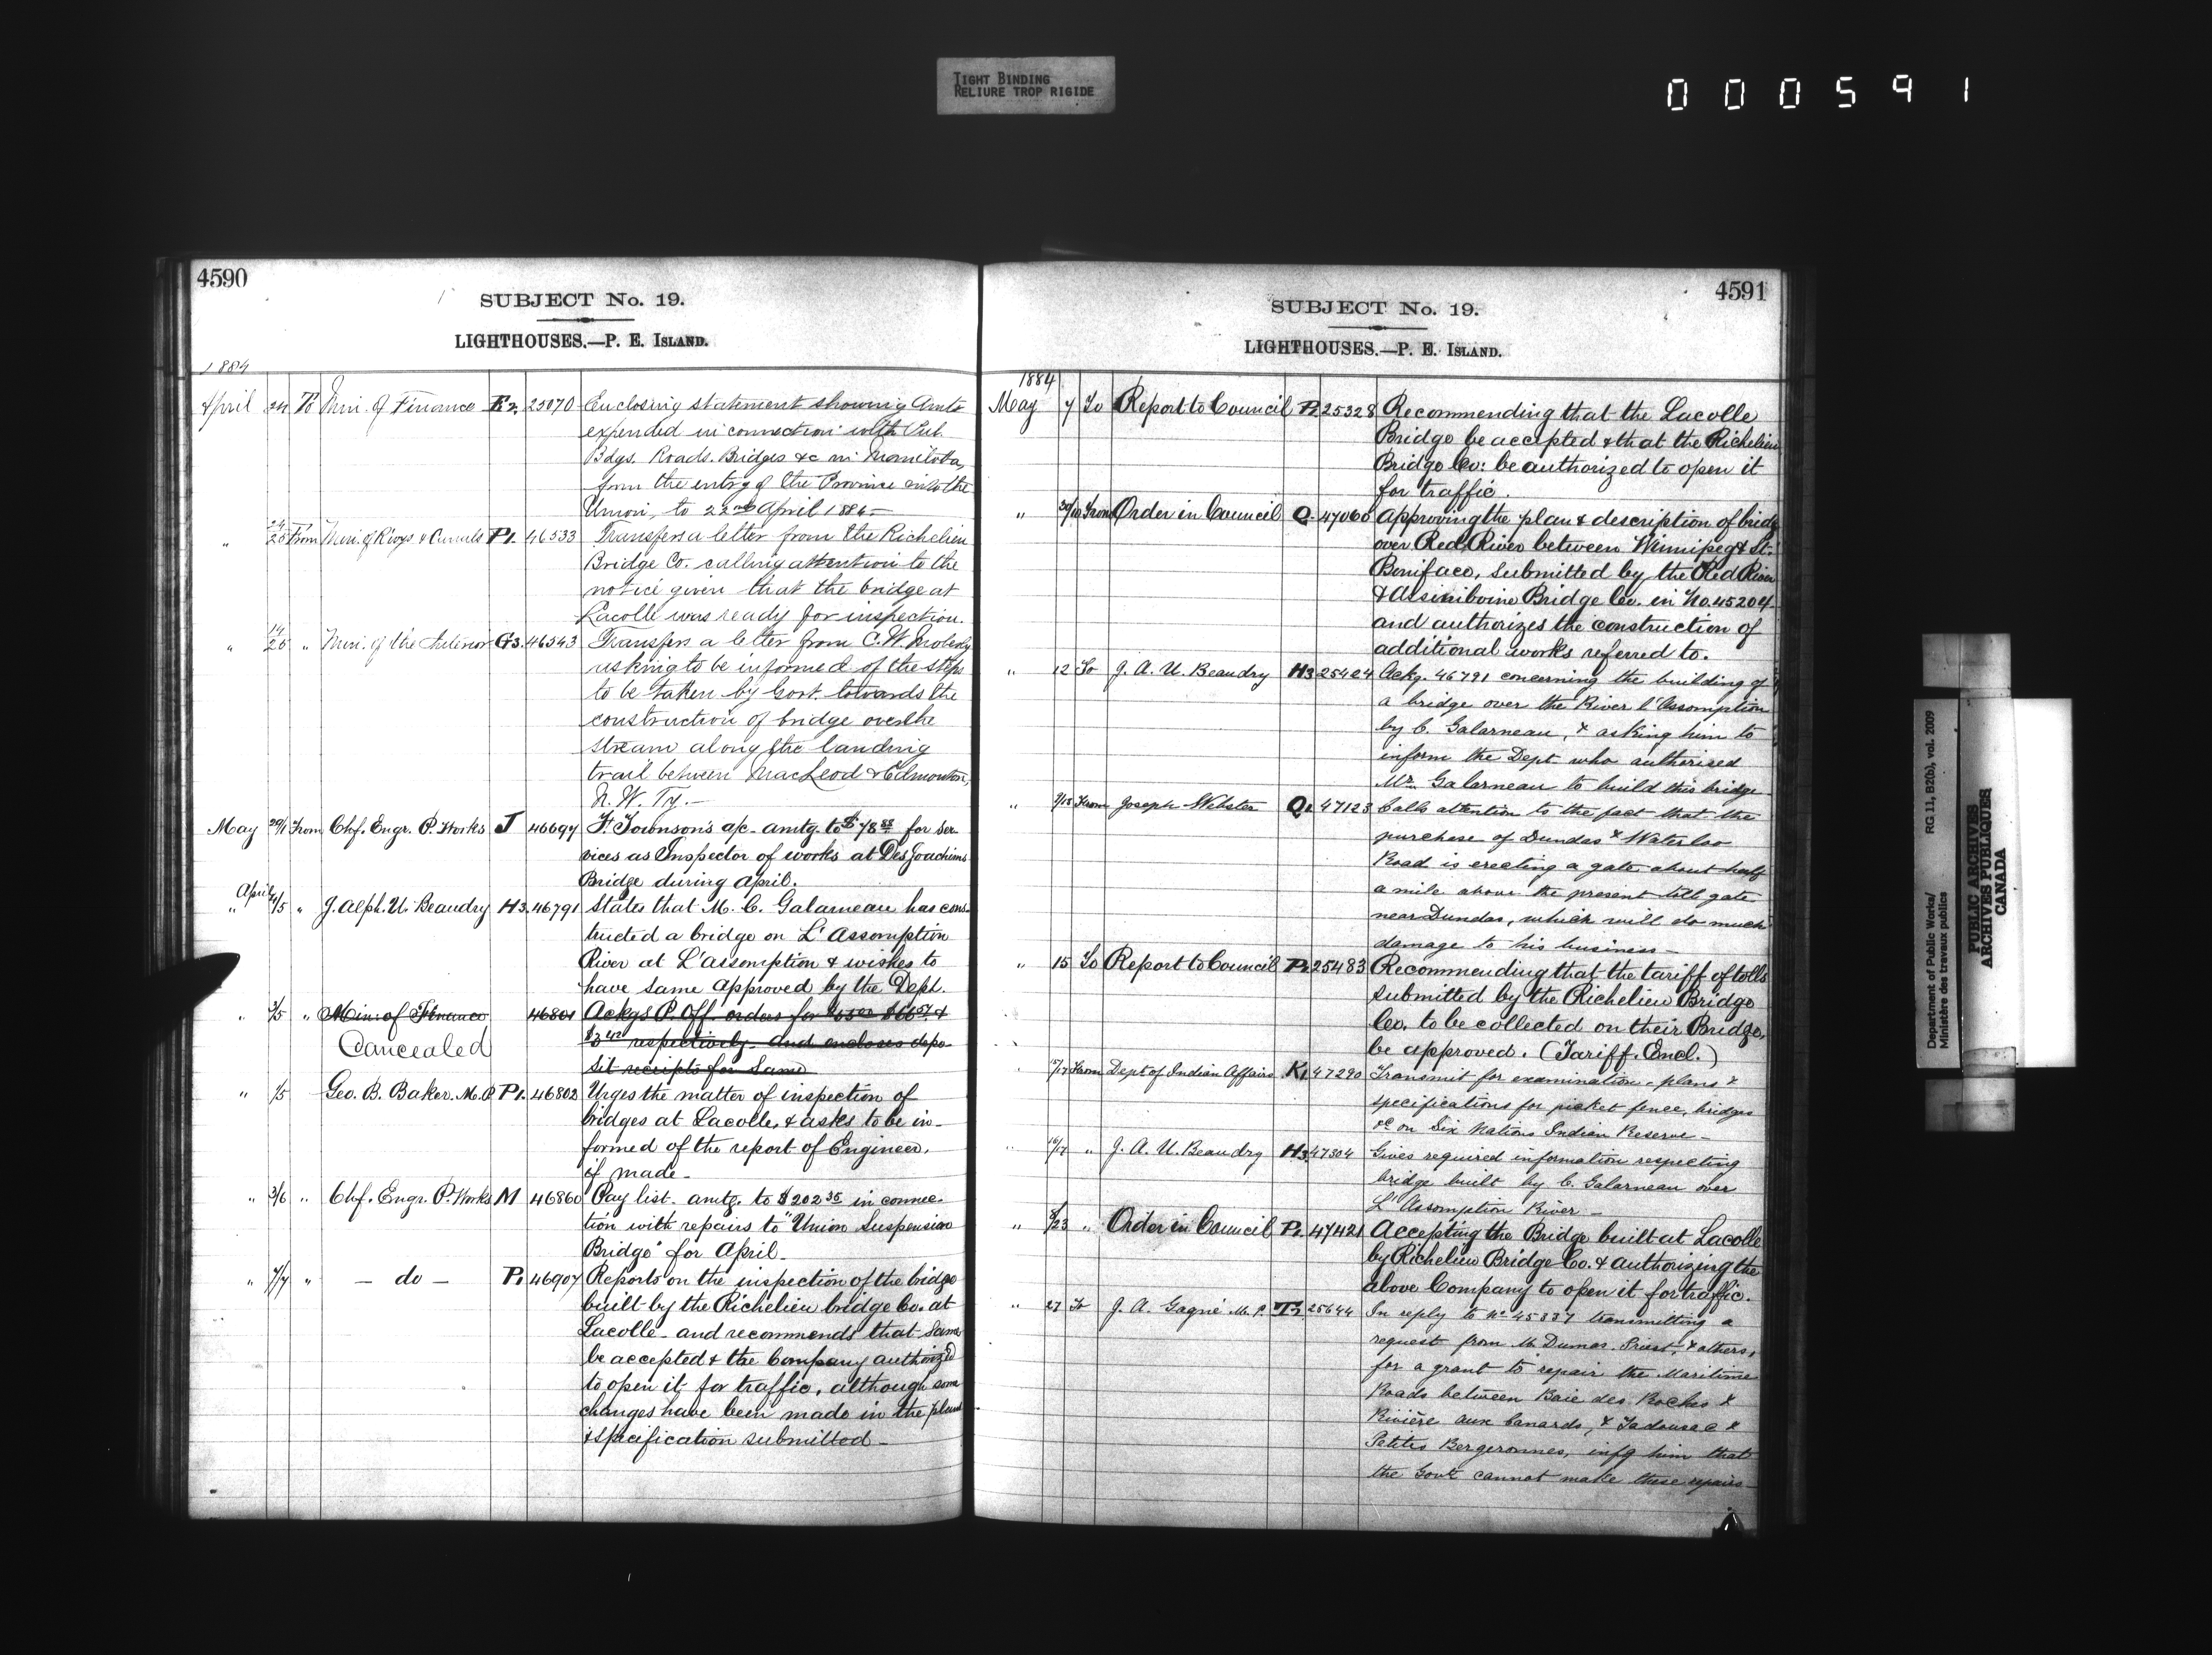 TIGHT BINDING
RELIURE TROP RIGIDE
000591
4590
SUBJECT No. 19.
LIGHTHOUSES.—P. E. ISLAND.
1884
April 24 To Min. of Finance 25070 Enclosing statement showing Amts
expended in connection with Pub.
Bdgs. Roads. Bridges &c in Manitoba,
from the entry of the Province into the
Union, to 22nd April 1884—
" 24/25 From Min. of Rwys & Canals P1. 46533 Transfers a letter from the Richelieu
Bridge Co. calling attention to the
notice given that the bridge at
Lacolle was ready for inspection.
" 14/25 " Min. of the Interior G3. 46543 Transfers a letter from C. W. Moberly
asking to be informed of the steps
to be taken by Govt. towards the
construction of bridge over the
stream along the landing
trail between MacLeod & Edmonton,
N. W. Ty.—
May 29/1 From Chf. Engr. P. Works J 46694 Townson's a/c- amtg. to for ser
vices as Inspector of works at Des Joachims
Bridge during April.
" April 4/5 " J. Alph. U. Beaudry H3. 46791 States that M. C. Galarneau has cons-
tructed a bridge on L'Assomption
River at L'Assomption & wishes to
have same approved by the Dept.
" 3/5 " Min: of Finance 46801 Ackgs P. Off. orders for &
respectively. And encloses depo-
sit receipts for Same
Cancealed
" 1/5 Geo. B. Baker. M.P. P1. 46802 Urges the matter of inspection of
bridges at Lacolle, & asks to be in-
formed of the report of Engineer,
if made-
" 3/6 " Chf. Engr. P. Works M 46860 Pay list- amtg. to $202 35 in connec-
tion with repairs to "Union Suspension
Bridge" for April-
" 7/7 " — do — P1 46907 Reports on the inspection of the bridge
built by the Richelieu bridge Co. at
Lacolle- and recommends that same
be accepted & the Company authorized
to open it for traffic, although some
changes have been made in the plan
& specification submitted-
4591
SUBJECT No. 19.
LIGHTHOUSES.—P. E. ISLAND.
1884
May 7 To Report to Council P1. 25328 Recommending that the Lacolle
Bridge be accepted & that the Richelieu
Bridge Co: be authorized to open it
for traffic.
" From Order in Council Q. 47060 Approving the plan & description of bridge
over Red River between Winnipeg & St.
Boniface, submitted by the Red River
& Assiniboine Bridge Co. in No. 45204
and authorizes the construction of
additional works referred to.
" 12 To J. A. U. Beaudry H3 25424 Ackg. 46791 concerning the building of
a bridge over the River l'Assomption
by C. Galarneau, & asking him to
inform the Dept who authorised
Mr. Galarneau to build this bridge-
" 9/15 From Joseph Webster Q1 47123 Calls attention to the fact that the
purchase of Dundas & Waterloo
Road is erecting a gate about half
a mile above the present toll gate
near Dundas, which will do much
damage to his business—
" 15 To Report to Council P1. 25483 Recommending that the tariff of tolls
submitted by the Richelieu Bridge
Co. to be collected on their Bridge,
be approved. (Tariff. Encl.)
15/17 From Dept of Indian Affairs K1 47290 Transmit for examination- plans &
specifications for picket fence, bridges
&c on Six Nations Indian Reserve—
" 16/17 " J. A. U. Beaudry H3. 47304 Gives required information respecting
bridge built by C. Galarneau over
L'Assomption River—
" 8/23 " Order in Council P1. 47421 Accepting the Bridge built at Lacolle
by Richelieu Bridge Co. & authorizing the
above Company to open it for traffic.
" 27 To J. A. Gagné M. P. 25644 In reply to No 45837 transmitting a
request from M. Dumas. Priest, & others,
for a grant to repair the Maritime
Roads between Baie des Roches &
Rivière aux Canards, & Tadousac &
Petites Bergeronnes, infg him that
the Govt cannot make these repairs-
Department of Public Works/
Ministère des travaux publics
RG 11, B2(b), vol. 2009
PUBLIC ARCHIVES
ARCHIVES PUBLIQUES
CANADA